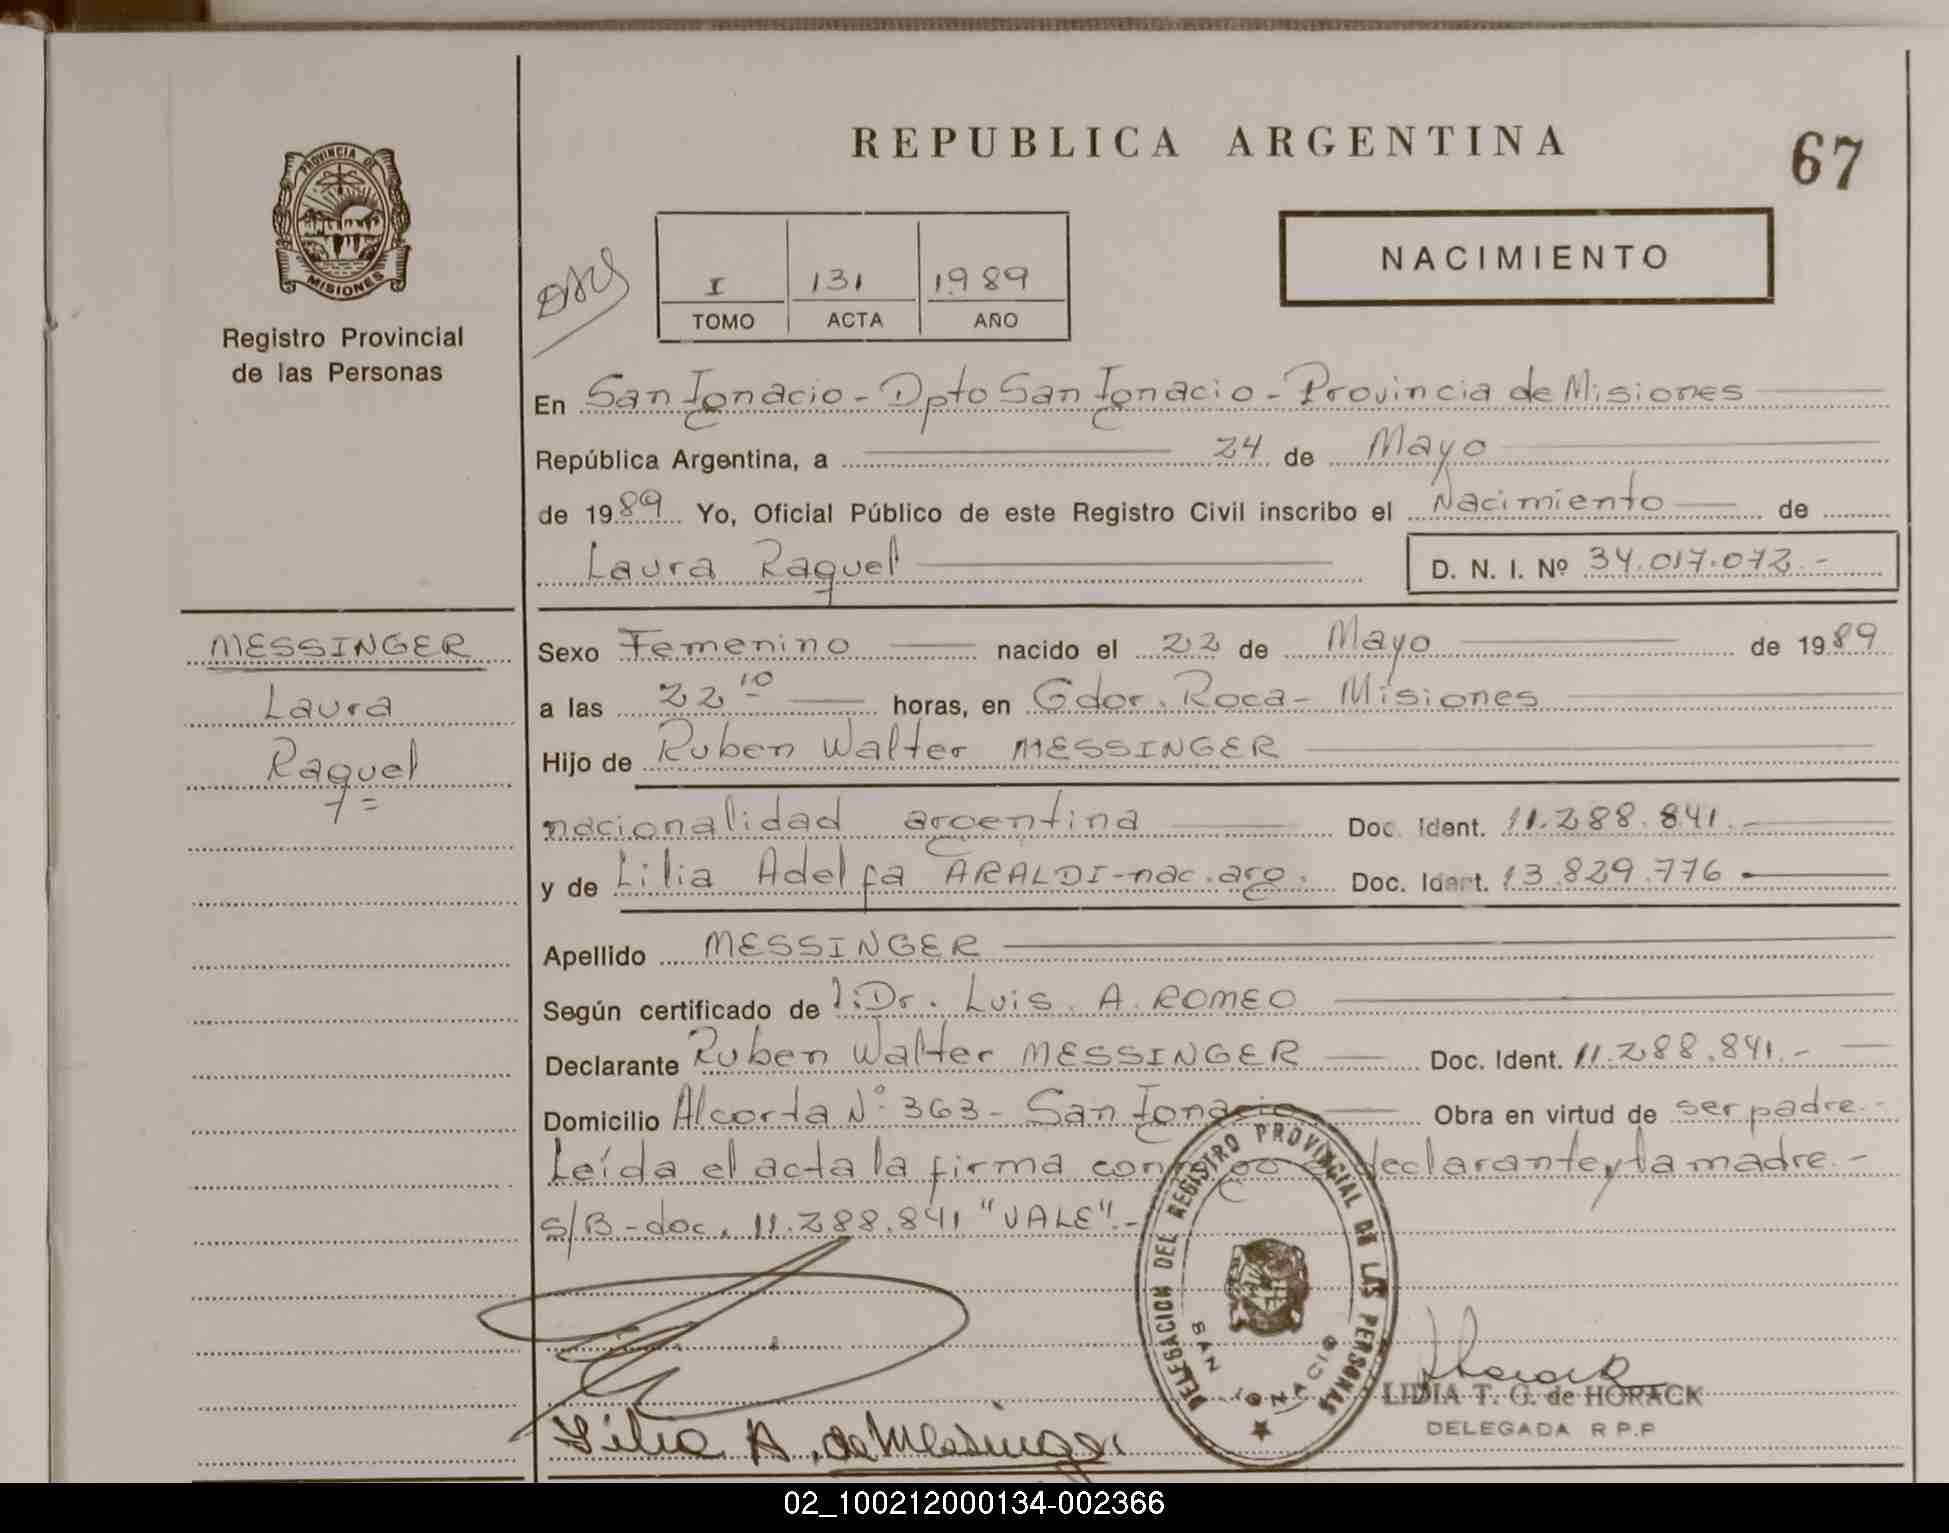 REPUBLICA ARGENTINA
67
PROVINCIA DE
MISIONES
Registro Provincial
de las Personas
I 131 1989
TOMO ACTA AÑO
NACIMIENTO
En San Ignacio - Dpto San Ignacio - Provincia de Misiones
República Argentina, a 24 de Mayo
de 1989 Yo, Oficial Público de este Registro Civil inscribo el Nacimiento de
Laura Raquel D. N. I. Nº 34.017.072.-
MESSINGER
Laura
Raquel
Sexo Femenino nacido el 22 de Mayo de 1989
a las 22 10 horas, en Gdor. Roca - Misiones
Hijo de Ruben Walter MESSINGER
nacionalidad argentina Doc. Ident. 11.288.841.-
y de Lilia Adelfa ARALDI - nac. arg. Doc. Ident. 13.829.776
Apellido MESSINGER
Según certificado de l. Dr. Luis A. ROMEO
Declarante Ruben Walter MESSINGER Doc. Ident. 11.288.841.-
Domicilio Alcorta Nº 363 - San Ignacio Obra en virtud de ser padre.-
Leída el acta la firma conmigo el declarante y la madre.-
s/B - doc. 11.288.841 "VALE".-
DELEGACION DEL REGISTRO PROVINCIAL DE LAS PERSONAS
SAN IGNACIO
Lilia A. de Messinger
Horack
LIDIA T. G. de HORACK
DELEGADA R P.P
02_100212000134-002366